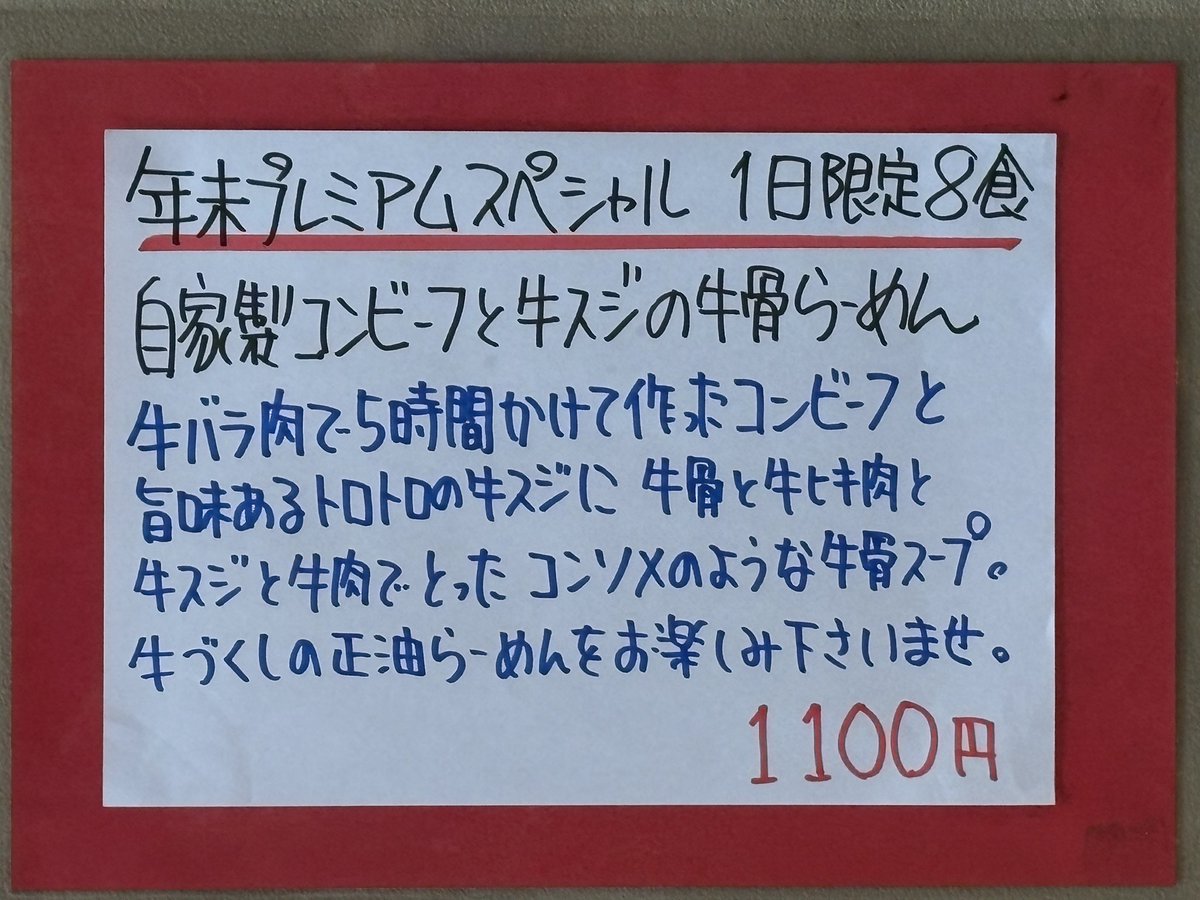 年末プレミアムスペシャル 1日限定8食
自家製コンビーフと牛スジの牛骨らーめん
牛バラ肉で5時間かけて作ったコンビーフと
旨味あるトロトロの牛スジに 牛骨と牛ヒキ肉と
牛スジと牛肉でとった コンソメのような牛骨スープ。
牛づくしの正油らーめんをお楽しみ下さいませ。
1100円